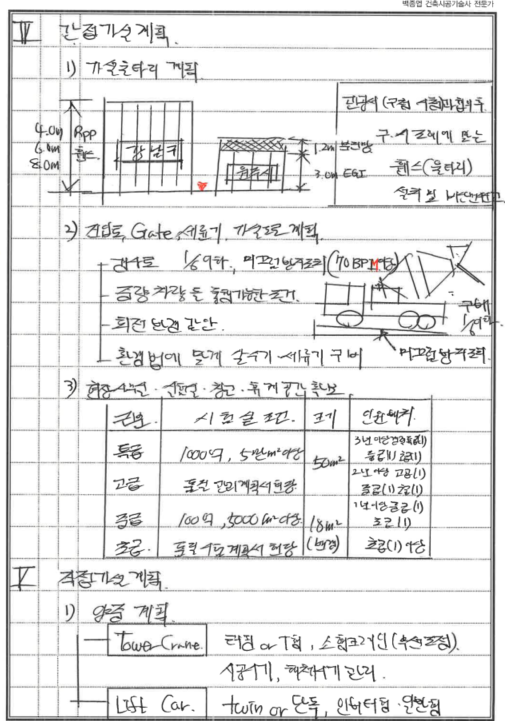 백종엽 건축시공기술사 전문가
Ⅳ 간접가설계획
1) 가설울타리 계획
4.0m
6.0m
8.0m
RPP
휀스
강남구
원주시
1.2m 분진망
3.0m EGI
관공서 (구청, 시청)과 협의 후
구·시 조례에 맞는
휀스(울타리)
설치 및
2) 진입로, Gate, 세륜기, 가설도로 계획
경사로 1/6이하, 미끄럼방지조치 (70BPN이상)
중량차량 등 출입가능한 조건
회전반경 감안
환경법에 맞게 살수기 세륜기 구비
구배
1/6이하
미끄럼방지조치
3) 현장사무실·시험실·창고·휴게공간 확보
구분 시험실조건 크기 인원배치
특급 1000억, 5만m²이상 50m² 3년이상 경력특급(1)
중급(1) 초급(1)
고급 품질관리계획서현장 2년이상 고급(1)
중급(1) 초급(1)
중급 100억, 5000m²이상 18m² 1년이상 중급(1)
초급(1)
초급 품질시험계획서 현장 (변경) 초급(1)이상
Ⅴ 직접가설계획
1) 양중 계획
Tower Crane 러핑 or T형, 소형크레인
시공시기, 해체시기 관리
Lift Car. twin or 단독, 인버터형·일반형